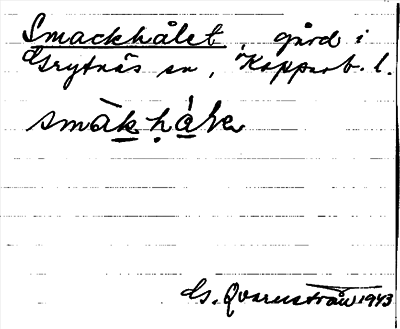 Smackhålet, gård i
Grytnäs sn, Kopparb. l.
smàkhálen
G. Qvarnström 1943